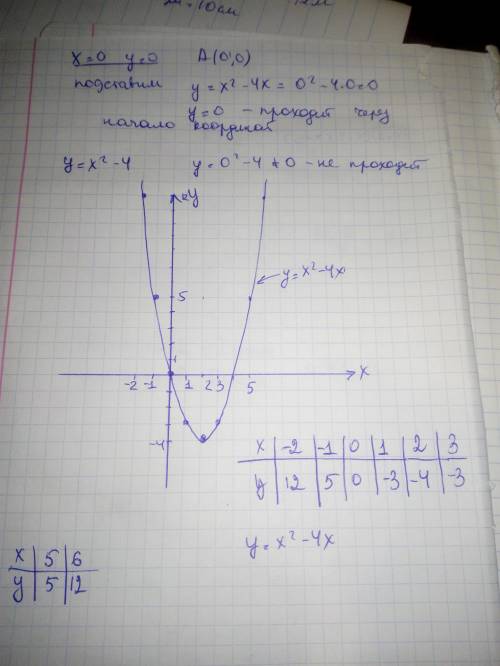 m = 10 см
x=0 y=0 A(0;0)
подставим y = x² - 4x = 0² - 4·0 = 0
y=0 - проходит через
начало координат
y = x² - 4 y = 0² - 4 ≠ 0 - не проходит
y
y = x² - 4x
5
1
-2 -1 1 2 3 5 x
-4
x | -2 | -1 | 0 | 1 | 2 | 3
y | 12 | 5 | 0 | -3 | -4 | -3
y = x² - 4x
x | 5 | 6
y | 5 | 12